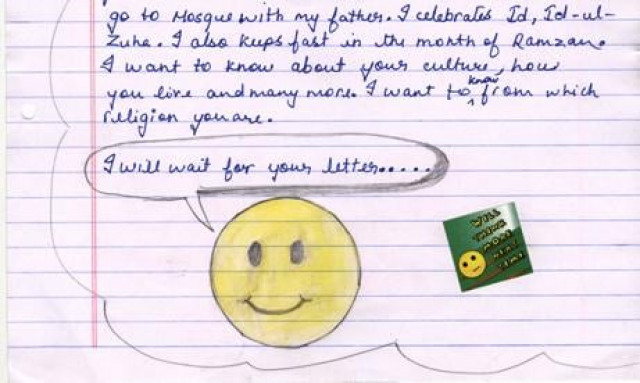 go to Mosque with my father. I celebrates Id, Id-ul-
Zuha. I also keeps fast in the month of Ramzan.
I want to know about your culture, how
you live and many more. I want to know from which
religion you are.
I will wait for your letter.....
WILL
THINK
MORE
NEXT
TIME